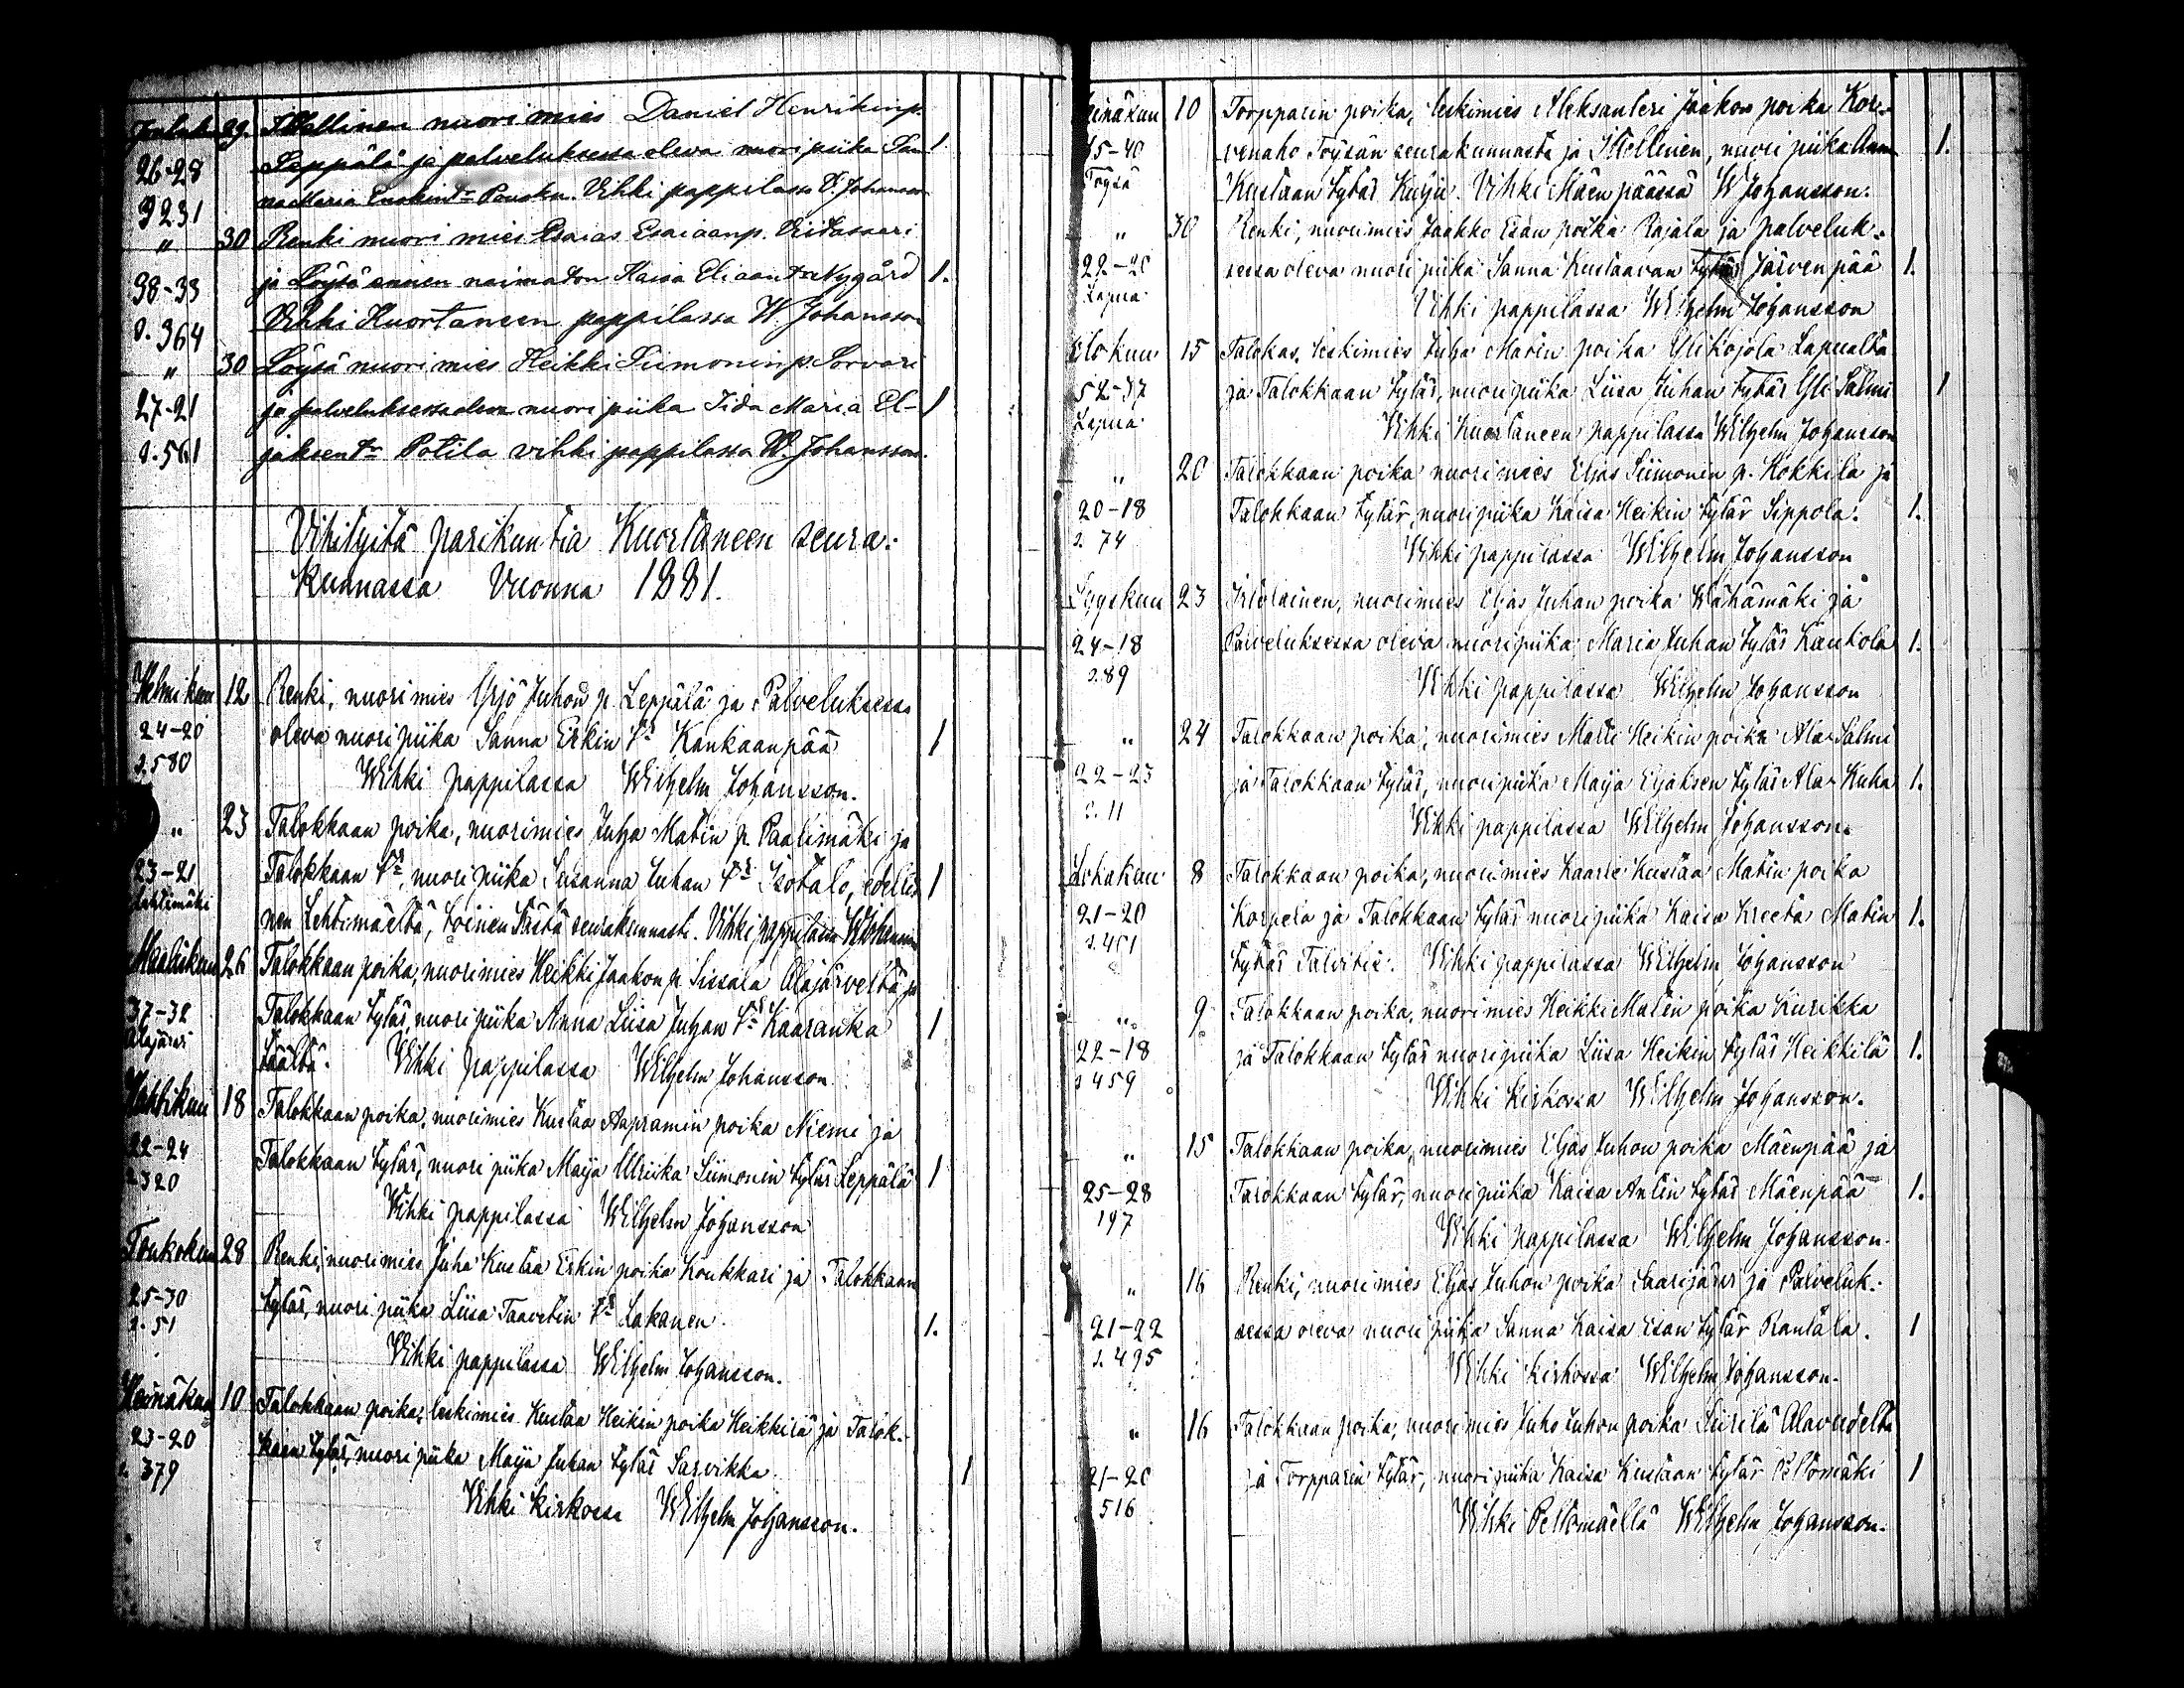 Jouluk 29. Itsellinen nuori mies Daniel Henrikinp.
26-28 Leppälä ja palveluksessa oleva nuori piika San 1
S 231 na Maria Enokin tr Vihki pappilassa V. Johansson
" 30 Renki nuori mies Esaias Esaiaanp.
38-33 ja Löysä naimaton Kaisa Eliaan tr Nygård 1.
S. 364 Vihki Kuortaneen pappilassa W. Johansson
" 30 Löysä nuori mies Heikki Siimoninp. Sorvari
27-21 ja palveluksessa oleva nuori piika Iida Maria El- 1
S. 561 jaksen tr Potila vihki pappilassa W. Johansson.
Vihityitä parikuntia Kuortaneen seura-
kunnassa Vuonna 1881.
Helmikuu 12 Renki, nuorimies Yrjö Juhon p. Leppälä ja Palveluksessa
24-20 oleva nuori piika Sanna Erkin tr Kankaanpää 1
S. 580 Wihki pappilassa Wilhelm Johansson.
" 23 Talokkaan poika, nuorimies Juha Matin p. Paalimäki ja
23-21 Talokkaan tr, nuori piika Susanna Juhan tr Isotalo, edelli- 1
Lehtimäki nen Lehtimäeltä, toinen tästä seurakunnasta. Vihki pappilassa W Johansson
Maaliskuu 26 Talokkaan poika, nuorimies Heikki Jaakon p. Sissala Alajärveltä ja
37-32 Talokkaan tytär, nuori piika Anna Liisa Juhan tr Kaaranka 1
Alajärvi täältä. Vihki pappilassa Wilhelm Johansson
Huhtikuu 18 Talokkaan poika, nuorimies Kustaa Aapramin poika Niemi ja
22-24 Talokkaan tytär, nuori piika Maija Ulriika Siimonin tytär Leppälä 1
S 320 Vihki pappilassa Wilhelm Johansson
Toukokuu 28 Renki, nuorimies Juha Kustaa Erkin poika Koukkari ja Talokkaan
25-30 tytär, nuori piika Liisa Taavetin tr Lakanen 1.
S. 51 Vihki pappilassa Wilhelm Johansson.
Heinäkuu 10 Talokkaan poika, leskimies Kustaa Heikin poika Heikkilä ja Talok-
23-20 kaan tytär, nuori piika Maija Juhan tytär Sarvikka 1
S. 379 Vihki kirkossa Wilhelm Johansson.
Heinäkuu 10 Torpparin poika, leskimies Aleksanteri Jaakon poika Kor-
35-40 venaho Töysän seurakunnasta ja Itsellinen, nuori piika Anna 1.
Töysä Kustaan tytär Kulju. Vihki Mäenpäässä W Johansson.
" 30 Renki, nuorimies Jaakko Esan poika Rajala ja palveluk-
22-20 sessa oleva nuori piika Sanna Kustaavan tytär Järvenpää 1.
Lapua Vihki pappilassa Wilhelm Johansson
Elokuu 15 Talokas, leskimies Juha Matin poika Ylikojola Lapualta
52-37 ja Talokkaan tytär, nuori piika Liisa Juhan tytär Yli Salmi 1
Lapua Vihki Kuortaneen pappilassa Wilhelm Johansson
" 20 Talokkaan poika nuorimies Eljas Siimonin p. Kokkila ja
20-18 Talokkaan tytär, nuori piika Kaisa Heikin tytär Sippola. 1.
S. 74 Vihki pappilassa Wilhelm Johansson
Syyskuu 23 Irtolainen, nuorimies Eljas Juhan poika Wähämäki ja
24-18 Palveluksessa oleva nuori piika Maria Juhan tytär Kaukola 1.
S. 89 Vihki pappilassa Wilhelm Johansson
" 24 Talokkaan poika, nuorimies Matti Heikin poika Ala-Salmi
22-23 ja Talokkaan tytär, nuori piika Maija Eljaksen tytär Ala-Kuha 1.
S. 11 Vihki pappilassa Wilhelm Johansson.
Lokakuu 8 Talokkaan poika, nuorimies Kaarle Kustaa Matin poika
21-20 Korpela ja Talokkaan tytär nuori piika Kaisa Kreeta Matin 1.
S. 401 tytär Talvitie. Vihki pappilassa Wilhelm Johansson
" 9 Talokkaan poika, nuorimies Heikki Matin poika Kurikka
22-18 ja Talokkaan tytär nuori piika Liisa Heikin tytär Heikkilä 1.
S 459 Vihki kirkossa Wilhelm Johansson.
" 15 Talokkaan poika, nuorimies Eljas Juhon poika Mäenpää ja
25-28 Talokkaan tytär, nuori piika Kaisa Antin tytär Mäenpää 1.
197 Vihki pappilassa Wilhelm Johansson.
" 16 Renki, nuorimies Eljas Juhon poika Saarijärvi ja Palveluk-
21-22 sessa oleva nuori piika Sanna Kaisa Esan tytär Rantala. 1
S. 495 Vihki kirkossa Wilhelm Johansson.
" 16 Talokkaan poika, nuorimies Juho Juhon poika Siirilä Alavudelta
21-20 ja Torpparin tytär, nuori piika Kaisa Kustaan tytär Peltomäki 1
516 Wihki Peltomäellä Wilhelm Johansson.